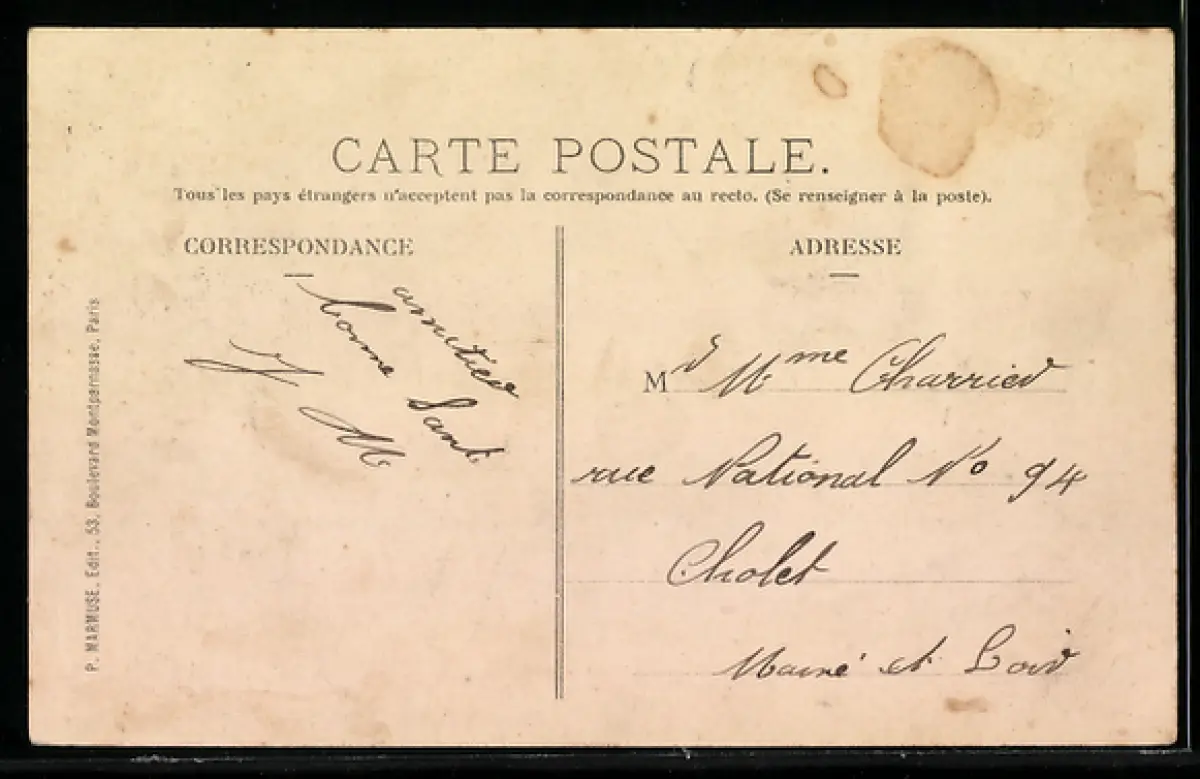 CARTE POSTALE.
Tous les pays étrangers n'acceptent pas la correspondance au recto. (Se renseigner à la poste).
CORRESPONDANCE
amitiés
bonne Santé
J M
ADRESSE
M Mme Charrier
rue National No 94
Cholet
Maine et Loir
P. MARMUSE, Edit., 53, Boulevard Montparnasse, Paris